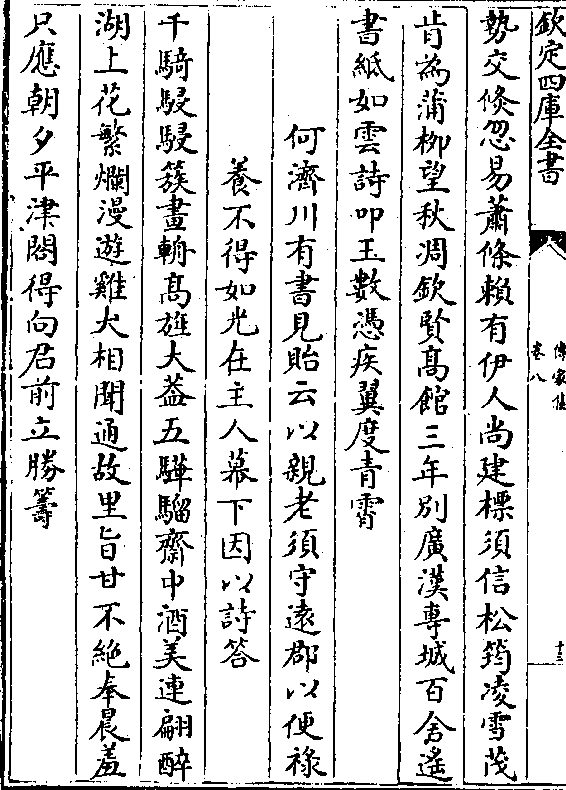 欽定四庫全書
傳家集
卷八
十三
勢交倏忽易蕭條賴有伊人尚建標須信松筠凌雪茂
肯為蒲柳望秋凋欽賢髙館三年别廣漢專城百舍遙
書紙如雲詩叩玉數憑疾翼度青霄
何濟川有書見貽云以親老須守遠郡以便禄
養不得如光在主人幕下因以詩答
千騎駸駸簇畫輈髙旌大葢五驊騮齋中酒美連翩醉
湖上花繁爛漫遊雞犬相聞通故里旨甘不絶奉晨羞
只應朝夕平津閤得向君前立勝籌